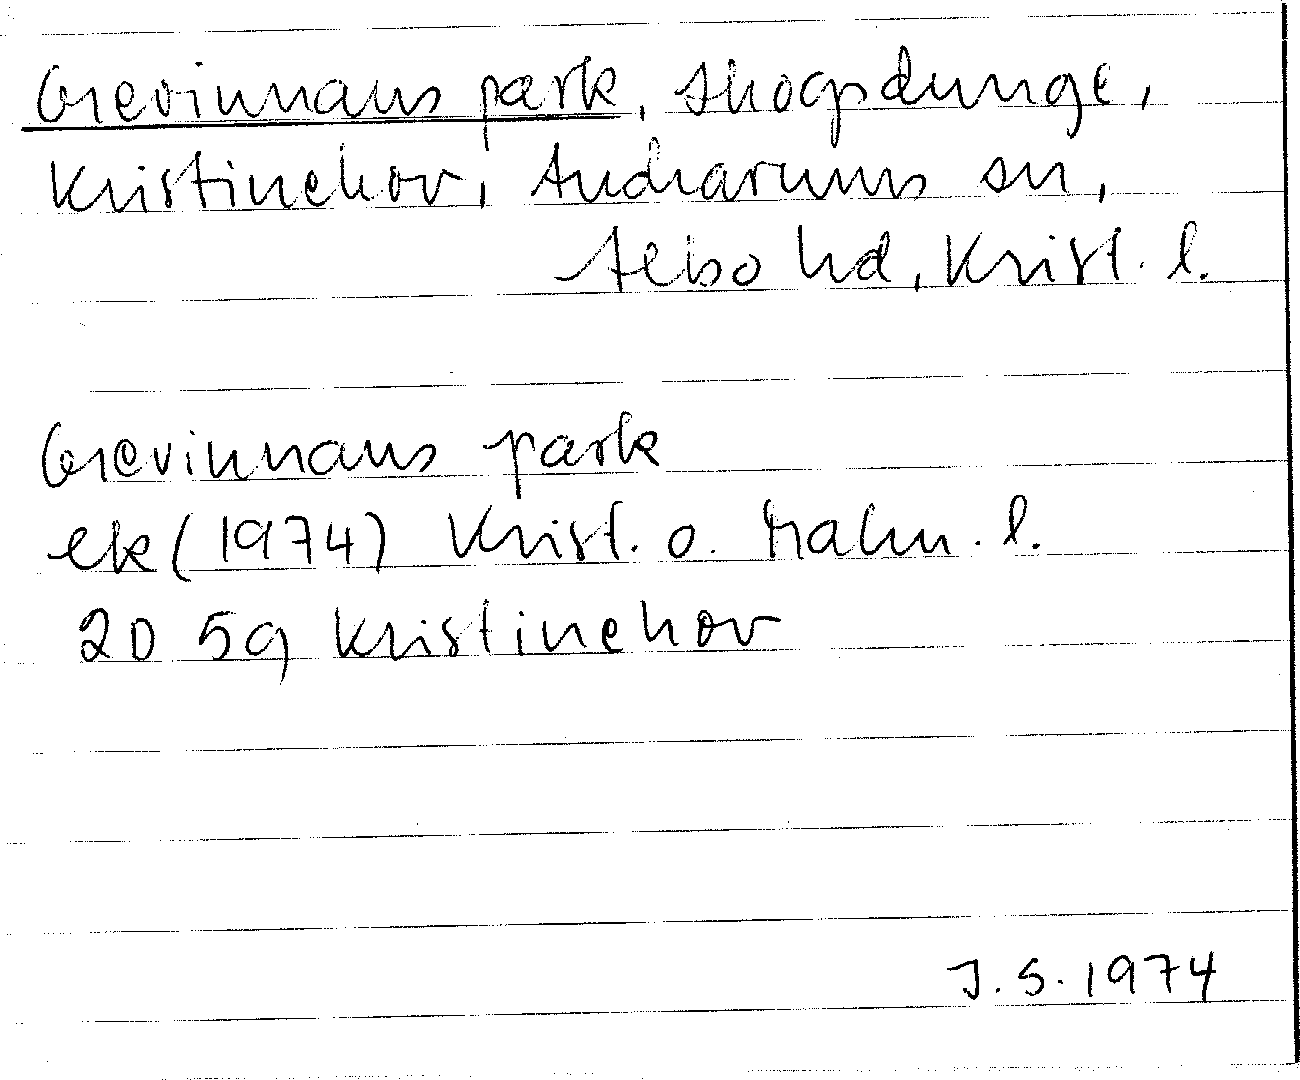 Grevinnans park, skogsdunge,
Kristinehov, Andrarums sn,
Albo hd, Krist. l.
Grevinnans park
ek (1974) Krist. o. Malm. l.
2D 5g Kristinehov
J.S. 1974